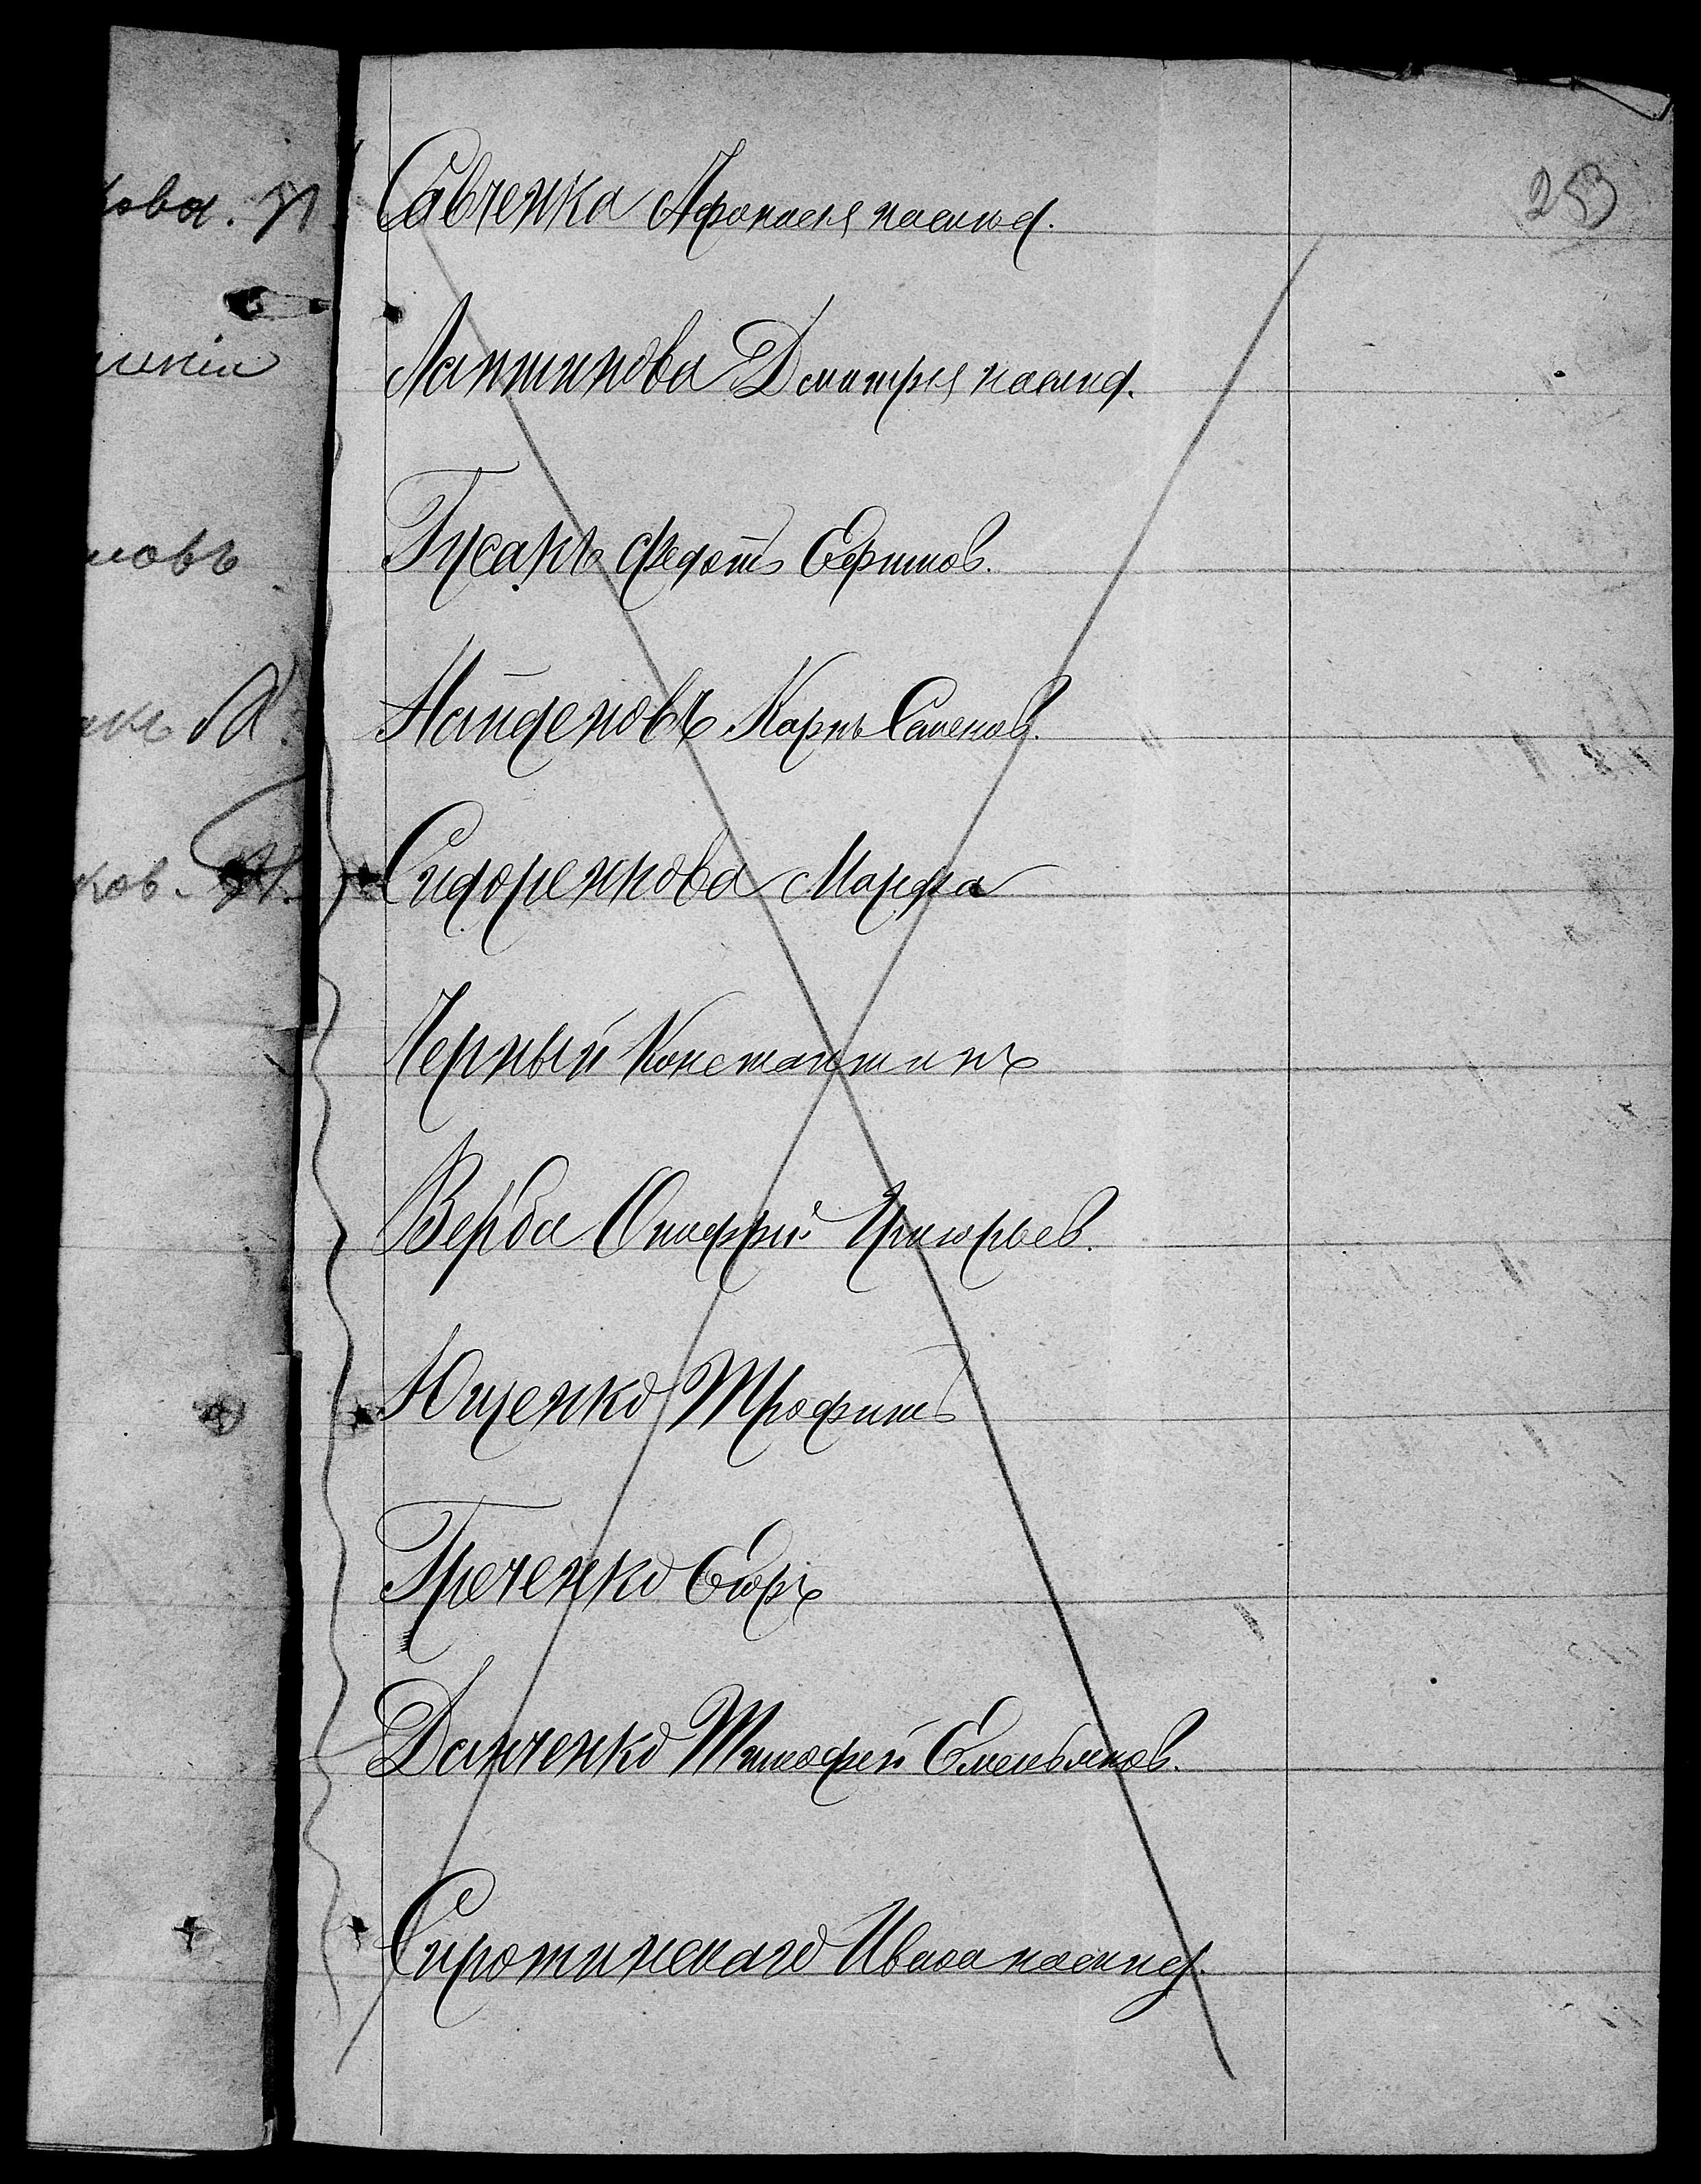 253
Савченка Афонасія наслѣд.
Лаптинова Дмитрія наслѣд.
Гусакъ Федотъ Ефимов.
Найденовъ Карпъ Семенов.
Сидоренкова Марфа
Черный Константинъ
Верба Онифрій Григорьев.
Ющенко Трофимъ
Греченко Егоръ
Данченко Тимофей Емельянов.
Сиротинскаго Ивана наслѣд.